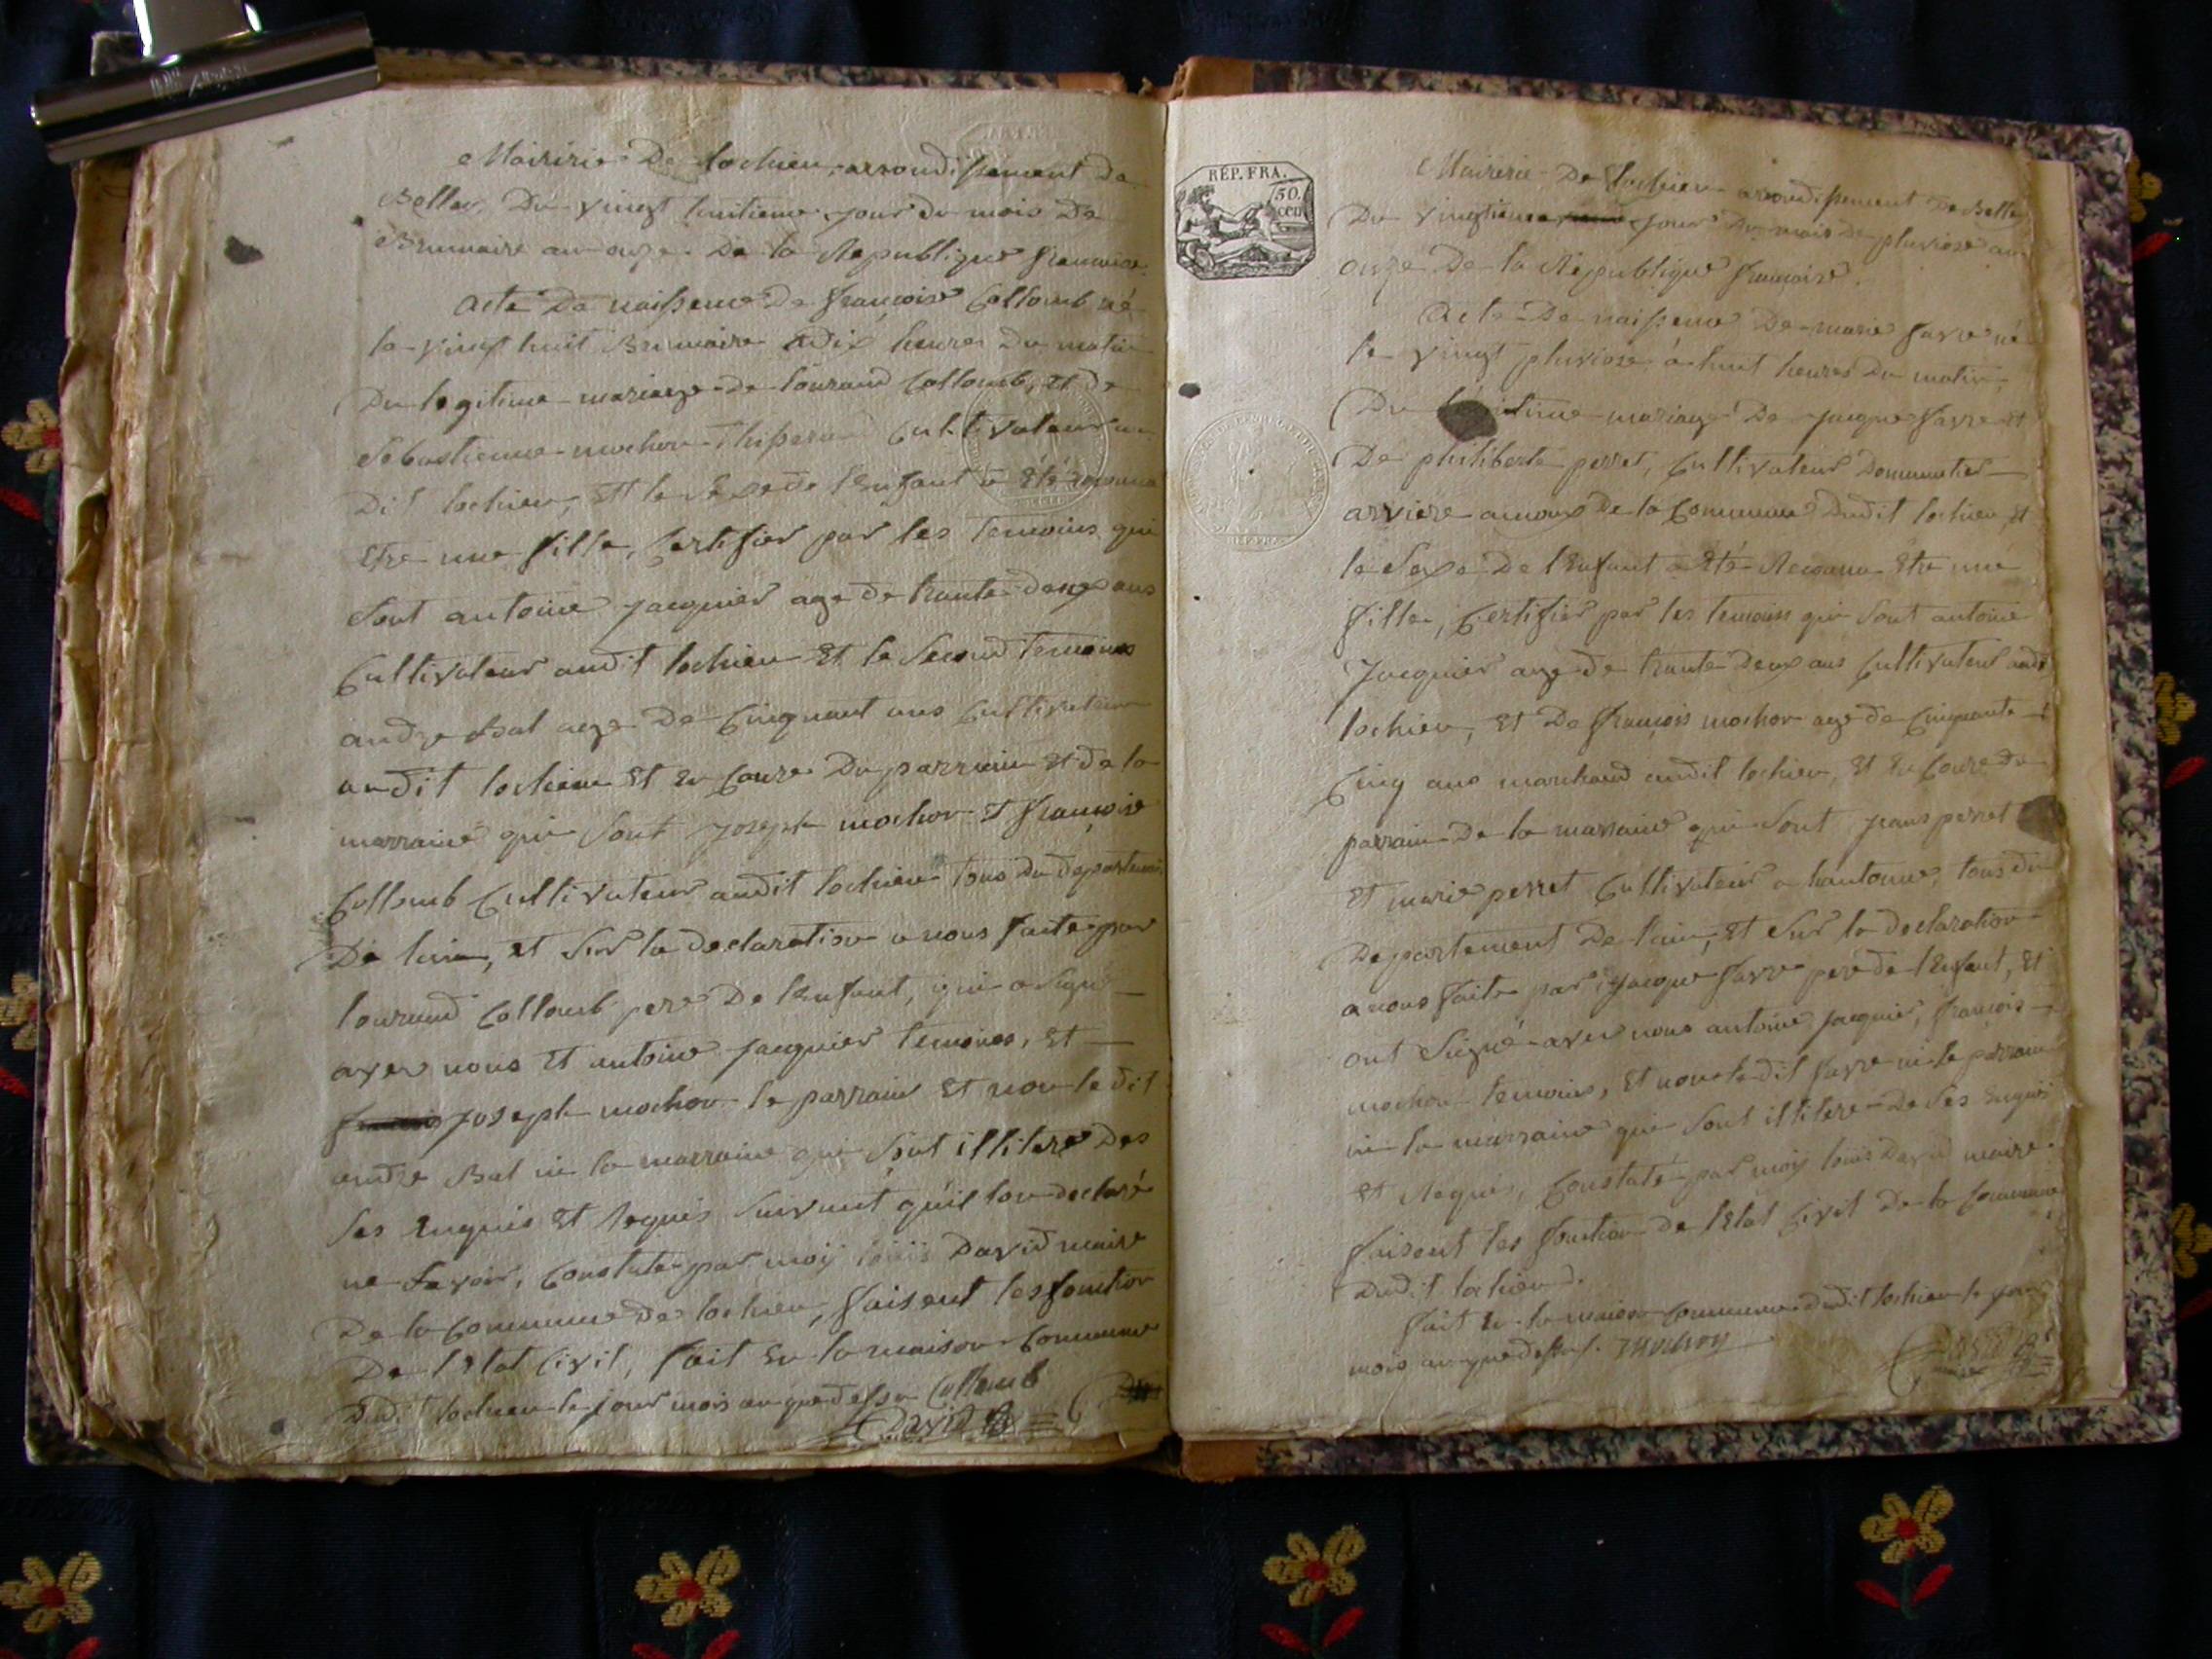 Mairirie De lochieu, arrondissement de
Belley, Du vingt huitieme jour du mois De
Brumaire an onze De la Republique francaise
acte De naissence De françoise Collomb né
le vingt huit Brumaire a dix heures Du matin
Du legitime mariage de lourand Collomb, et de
Sebastienne mochon Cultivateur
Dit lochieu, Et le Sexe de lEnfant a été reconnu
Etre une fille, Certifier par les temoins qui
Sont antoine jacquier age de trante deux ans
Cultivateur audit lochieu Et le Second temoins
andre Bal age De Cinquant ans Cultivateur
audit lochieu Et En Conze Du parrain Et de la
marraine qui Sont joseph mochon Et françoise
Collomb Cultivateur audit lochieu tous Du departement
De lain, et Sur la declaration a nous faite par
lourand Collomb pere De lEnfant, qui a Signé
avec nous Et antoine jacquier temoins, Et
joseph mochon le parrain Et non le dit
andre Bal ni la marraine qui Sont illitere Des
Ses Enquis Et Requis Suivant qu'il lon declaré
ne Savoir, Constater par moy louis David maire
De la Commune de lochieu, faisent les fonction
De lEtat Civil, fait En la maison Commune
Dudit lochieu le jour mois an que dessu Collomb
David
RÉP. FRA.
50
cen
Mairerie De lochieu arrondissement De Belley
Du vingtieme jour Du mois de pluviose an
onze De la Republique francaise.
Acte De naissence De marie favre né
le vingt pluviose à huit heures Du matin,
Du mariage De jacque favre Et
De philiberte perret, Cultivateur
arviere De la Commune Dudit lochieu, Et
le Sexe De lEnfant a Eté Reconnu Etre une
fille, Certifier par les temoins qui Sont antoine
Jacquier age de trante Deux ans Cultivateur audit
lochieu, Et De françois mochon age de Cinquante
Cinq ans marchand audit lochieu, Et En Conze du
parrain De la marraine qui Sont perret
Et marie perret Cultivateur a hautonne, tous du
Departement De lain, Et Sur la declaration
a nous faite par jacque favre pere de lEnfant, Et
ont Signé avec nous antoine jacquier, françois
mochon temoins, Et non le dit favre ni le parrain
ni la marraine qui Sont illitere De Ses Enquis
Et Requis, Constaté par moy louis David maire
faisent les fonction de lEtat Civil De la Commune
Dudit lochieu.
fait En la maison Commune dudit lochieu le jour
mois an que dessus. mochon
David